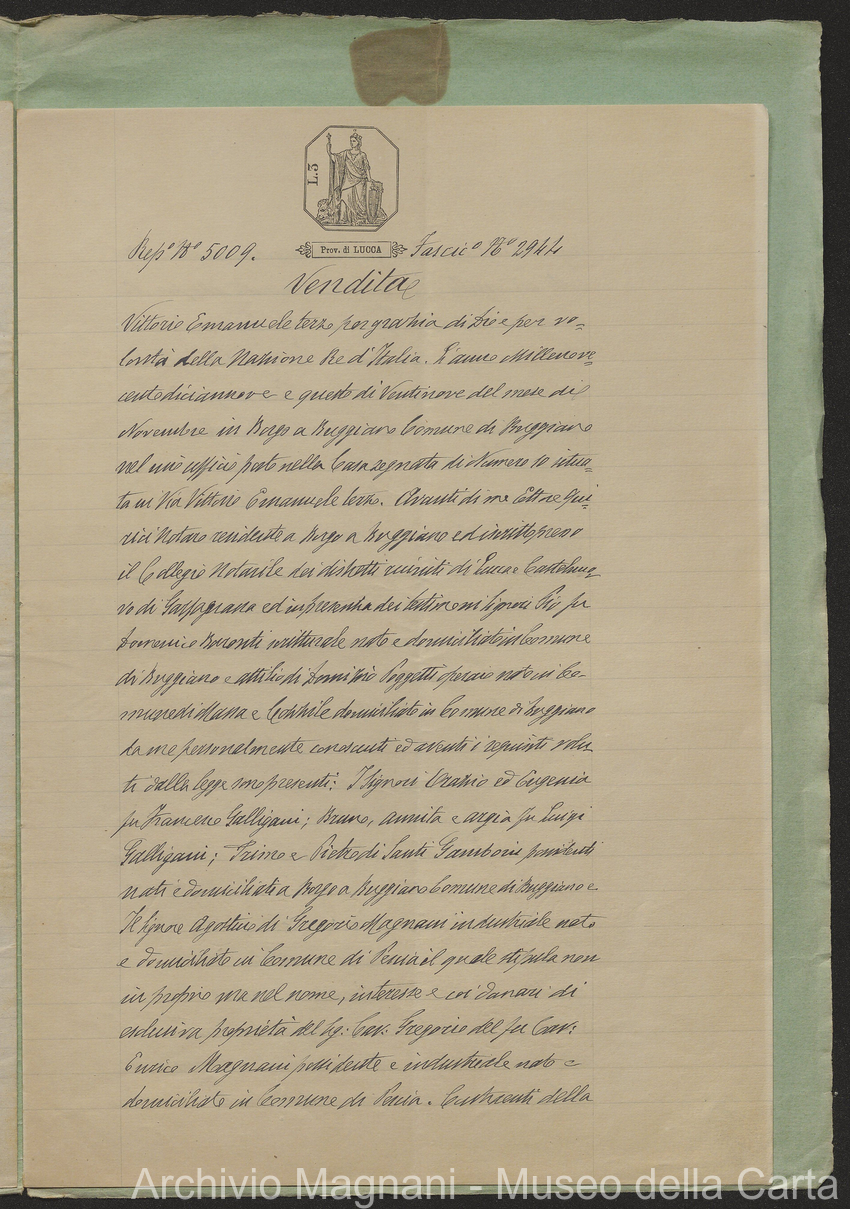 L.3
Prov. di LUCCA
Rep.º Nº 5009. Fascicº Nº 2944
Vendita
Vittorio Emanuele terzo per grazia di Dio e per vo=
lontà della Nazione Re d'Italia. L'anno Millenove=
centodiciannove e questo dì Ventinove del mese di
Novembre in Borgo a Buggiano Comune di Buggiano
nel mio ufficio posto nella Casa segnata di Numero 10 situa=
ta in Via Vittorio Emanuele terzo. Avanti di me Ettore Qui=
rici Notaro residente a Borgo a Buggiano ed iscritto presso
il Collegio Notarile dei distretti riuniti di Lucca e Castelnuo=
vo di Garfagnana ed in presenza dei testimoni signori Pio fu
Domenico scritturale nato e domiciliato in Comune
di Buggiano e Attilio di Domizio Poggetti operaio nato in Co=
mune di Massa e Cozzile domiciliato in Comune di Buggiano
da me personalmente conosciuti ed aventi i requisiti volu=
ti dalla legge sono presenti: I signori Orazio ed Eugenia
fu Francesco Galligani; Bruno, Annita e Argia fu Luigi
Galligani; Primo e Pietro di Santi possidenti
nati e domiciliati a Borgo a Buggiano Comune di Buggiano e
Il signore Agostino di Gregorio Magnani industriale nato
e domiciliato in Comune di Pescia il quale stipula non
in proprio ma nel nome, interesse e coi danari di
esclusiva proprietà del Sg: Cav: Gregorio del fu Cav:
Enrico Magnani possidente e industriale nato e
domiciliato in Comune di Pescia. Costituenti della
Archivio Magnani - Museo della Carta